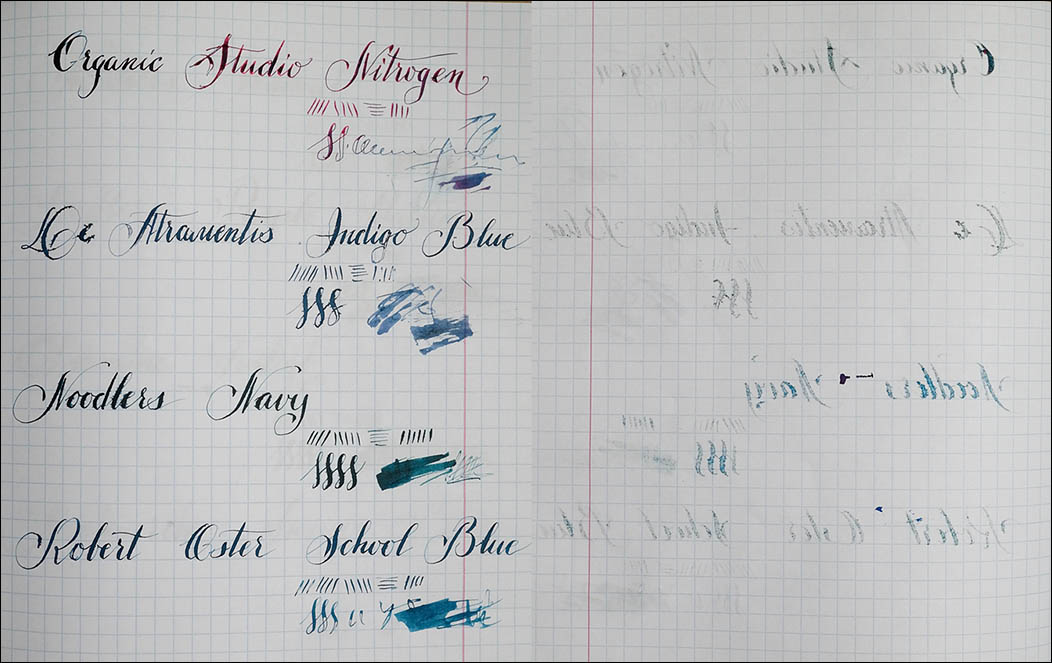 Organic Studio Nitrogen
De Atramentis Indigo Blue
Noodlers Navy
Robert Oster School Blue